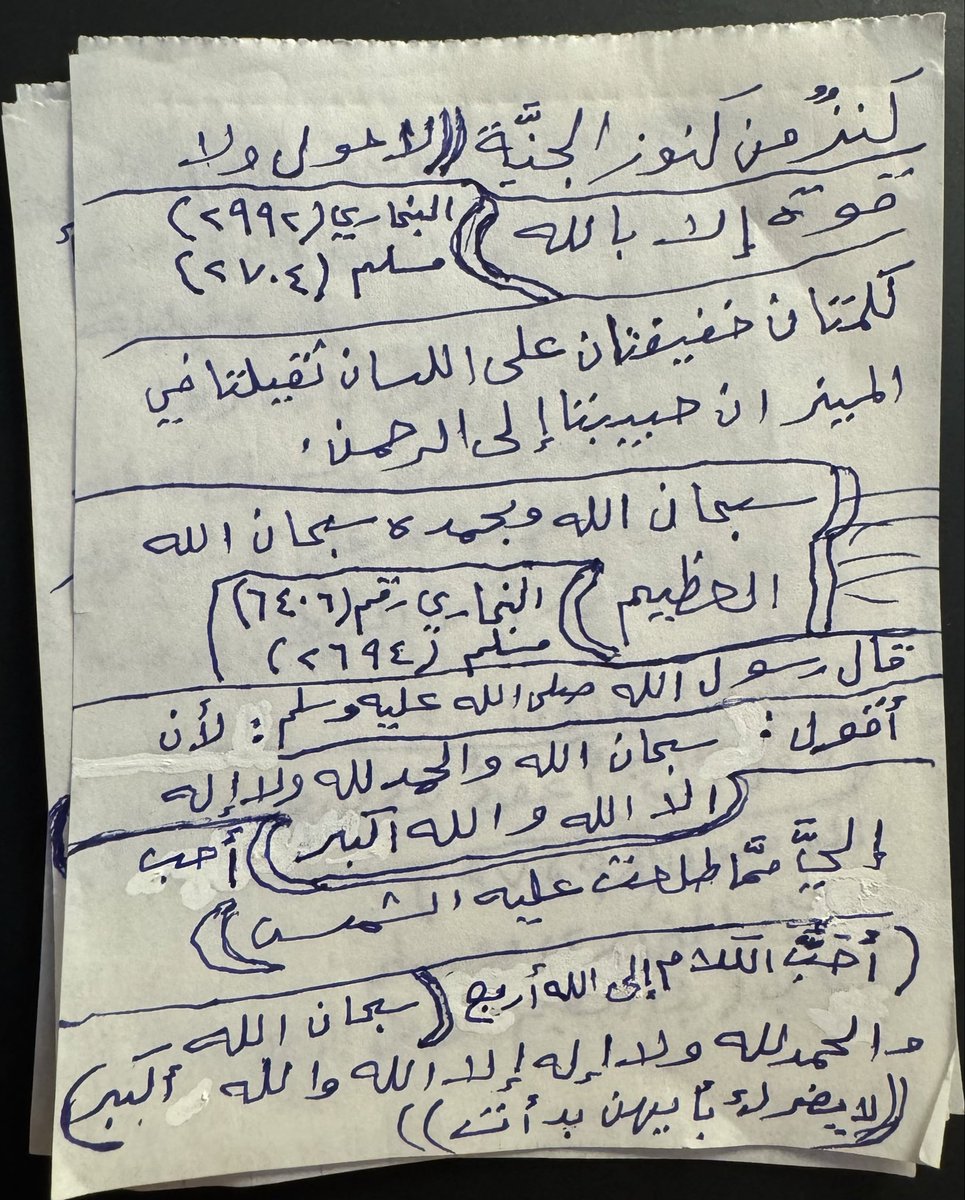 كنزٌ من كنوز الجنَّة ((لا حول ولا
قوة إلا بالله
البخاري (٢٩٩٢)
مسلم (٢٧٠٤)
كلمتان خفيفتان على اللسان ثقيلتا في
الميزان حبيبتنا إلى الرحمن.
سبحان الله وبحمده سبحان الله
العظيم
البخاري رقم (٦٤٠٦)
مسلم (٢٦٩٤)
قال رسول الله صلى الله عليه وسلم: لأن
أقول: سبحان الله والحمد لله ولا إله
إلا الله والله أكبر) أحب
إليَّ ممَّا طلعت عليه الشمس))
(أحَبَّ الكلام إلى الله أربع (سبحان الله
والحمد لله ولا إله إلا الله والله أكبر)
((لا يضرك بأيهن بدأت))